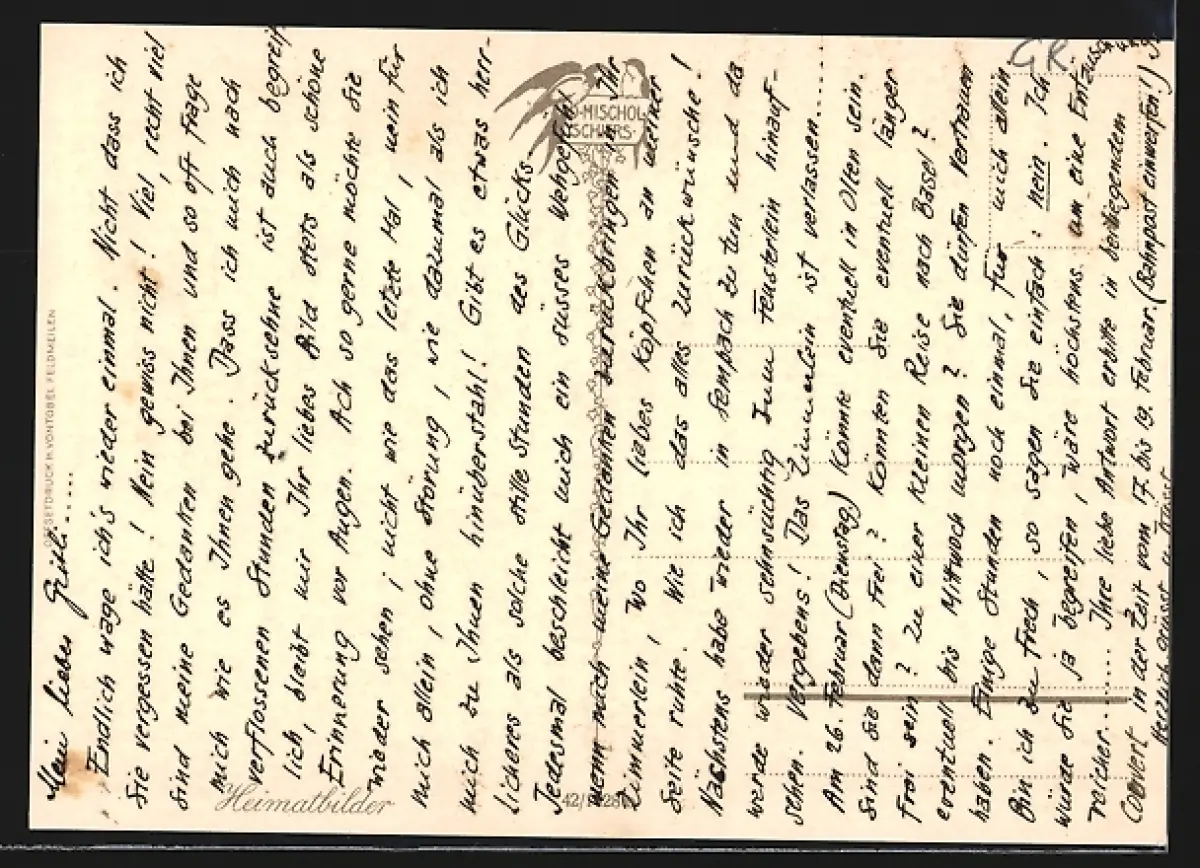 Mein liebes Griti.....
Endlich wage ich's wieder einmal. Nicht dass ich
Sie vergessen hätte! Nein gewiss nicht! Viel, recht viel
sind meine Gedanken bei Ihnen und so oft frage
mich wie es Ihnen gehe. Dass ich mich nach
verflossenen Stunden zurücksehne ist auch begreif
lich, bleibt mir Ihr liebes Bild stets als schöne
Erinnerung vor Augen. Ach so gerne möchte Sie
wieder sehen, nicht wie das letzte Mal, nein für
mich allein, ohne Störung, wie dazumal als ich
mich zu Ihnen hinüberstahl! Gibt es etwas herr-
licheres als solche stille Stunden des Glücks.
Jedesmal beschleicht mich ein süsses Wehgefühl
wenn mich meine Gedanken zurückbringen in Ihr
Zimmerlein, wo Ihr liebes Köpfchen an meiner
Seite ruhte. Wie ich das alles zurückwünsche!
Nächstens habe wieder in Sempach zu tun und da
werde wieder sehnsüchtig zum Fensterlein hinauf-
sehen. Vergebens! Das Zimmerlein ist verlassen....
Am 26. Februar (Dienstag) könnte eventuell in Olten sein.
Sind Sie dann frei? Könnten Sie eventuell länger
frei sein? Zu einer kleinen Reise nach Basel?
eventuell bis Mittwoch morgen? Sie dürfen Vertrauen
haben. Einige Stunden noch einmal, für mich allein
Bin ich zu frech, so sagen Sie einfach: nein. Ich
würde Sie ja begreifen, wäre höchstens um eine Enttäuschung
reicher..... Ihre liebe Antwort erbitte in beiliegendem
Couvert in der Zeit vom 17. bis 19. Februar. (Bahnpost einwerfen!)
Herzlich grüsst u. küsst
GR
OFFSETDRUCK H. VONTOBEL FELDMEILEN
Heimatbilder
MISCHOL
SCHIERS